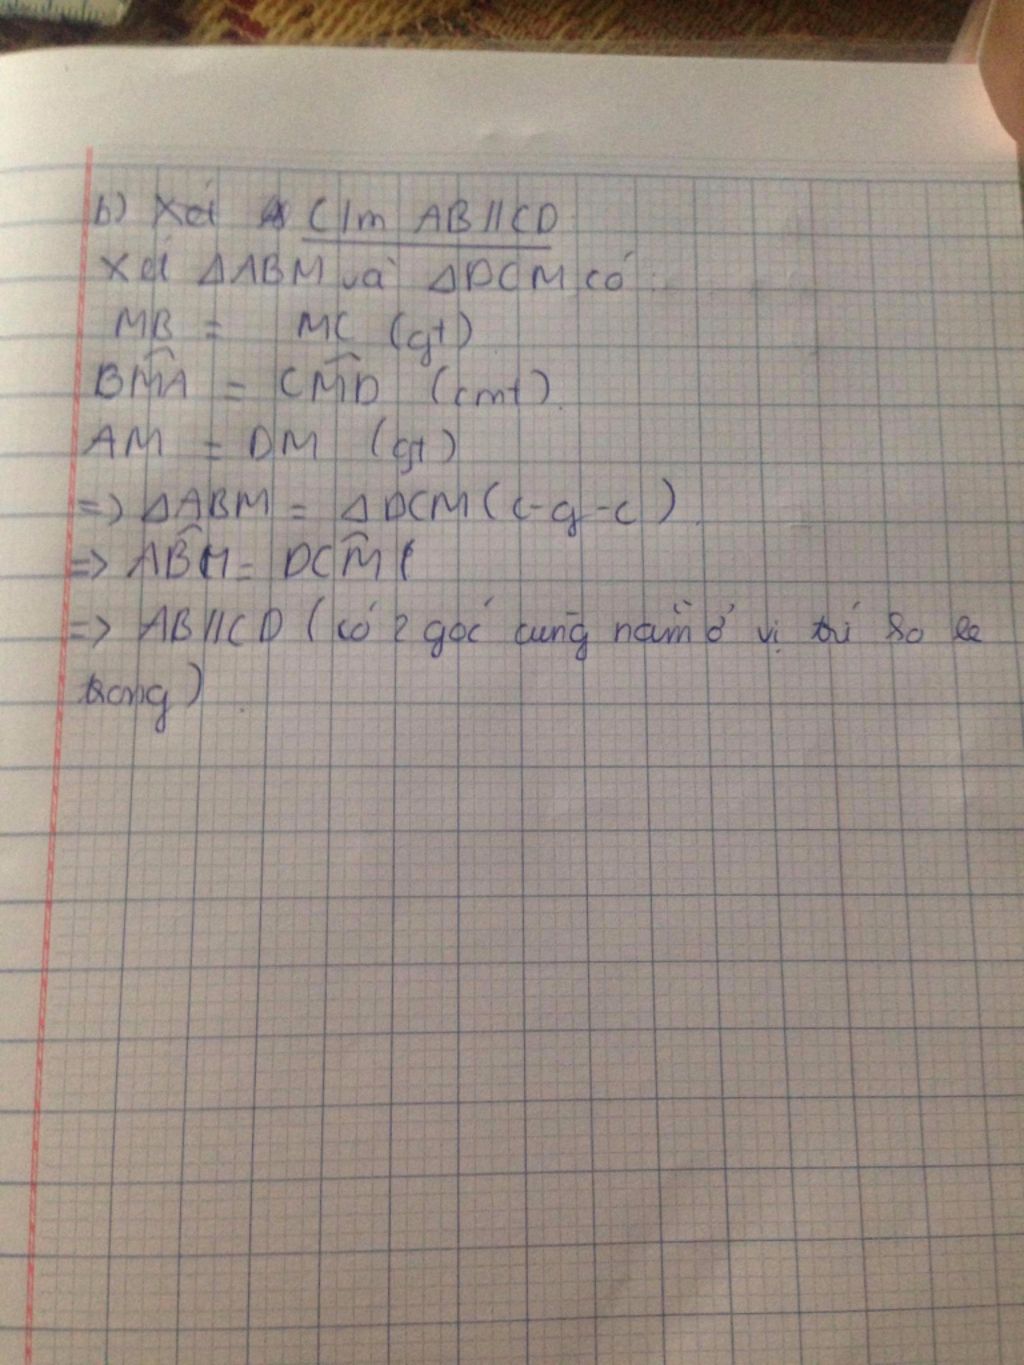 b) Xét C/m AB//CD
Xét ΔABM và ΔDCM có:
MB = MC (gt)
BM̂A = CM̂D (cmt).
AM = DM (gt)
=> ΔABM = ΔDCM (c-g-c).
=> AB̂M = DCM̂
=> AB//CD (có 2 góc cùng nằm ở vị trí so le
trong).